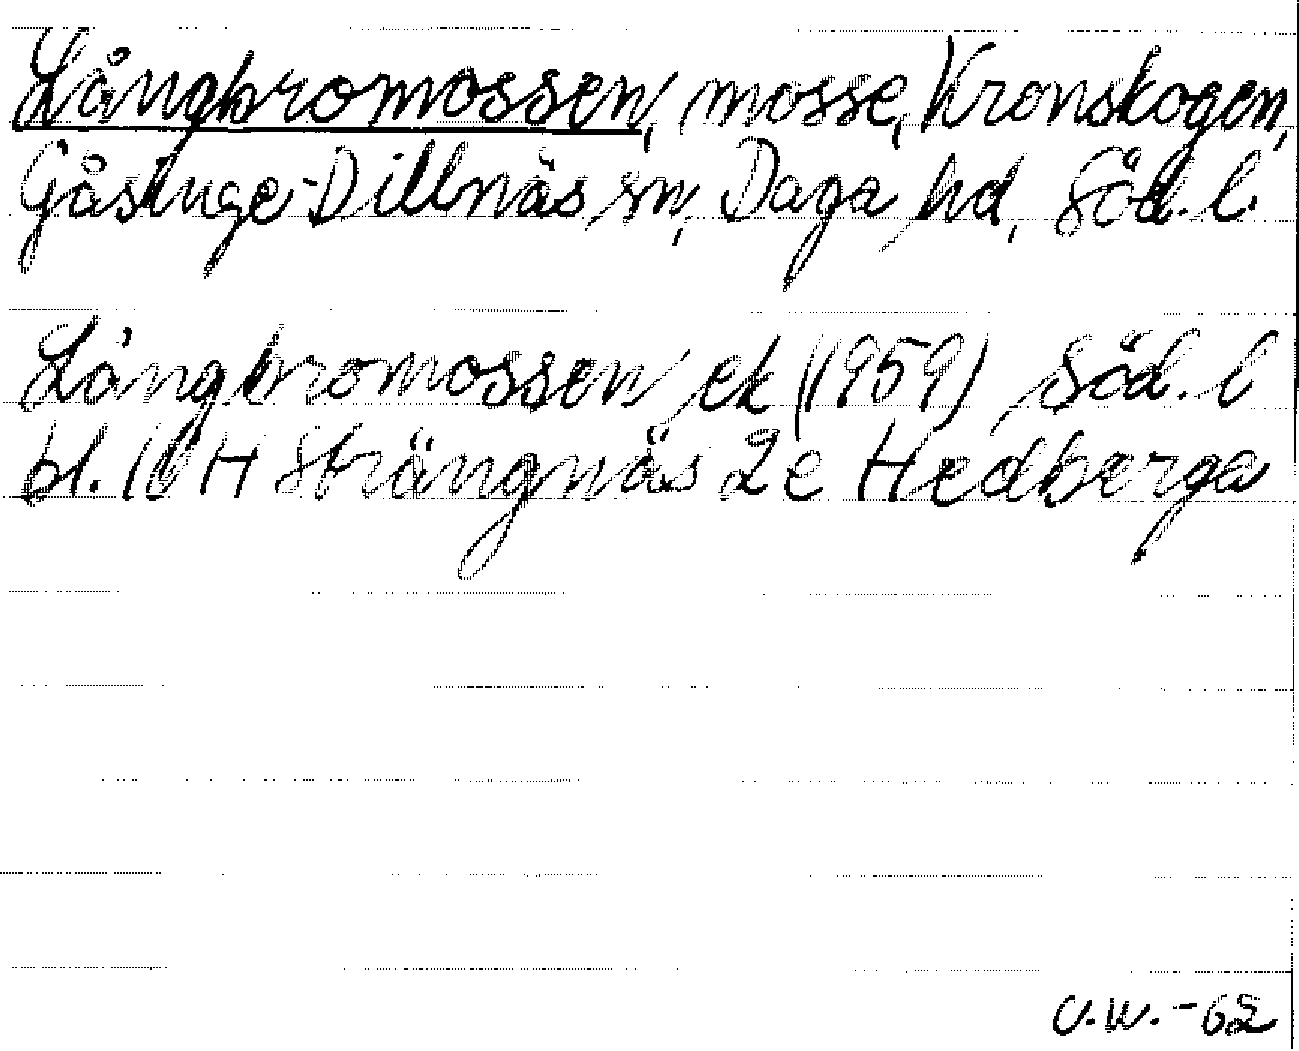 Långbromossen, mosse, Kronskogen,
Gåsinge-Dillnäs sn, Daga hd, Söd. l.
Långbromossen ek (1959) Söd. l
bl. 10 H Strängnäs 2e Hedberga
U.W. -62